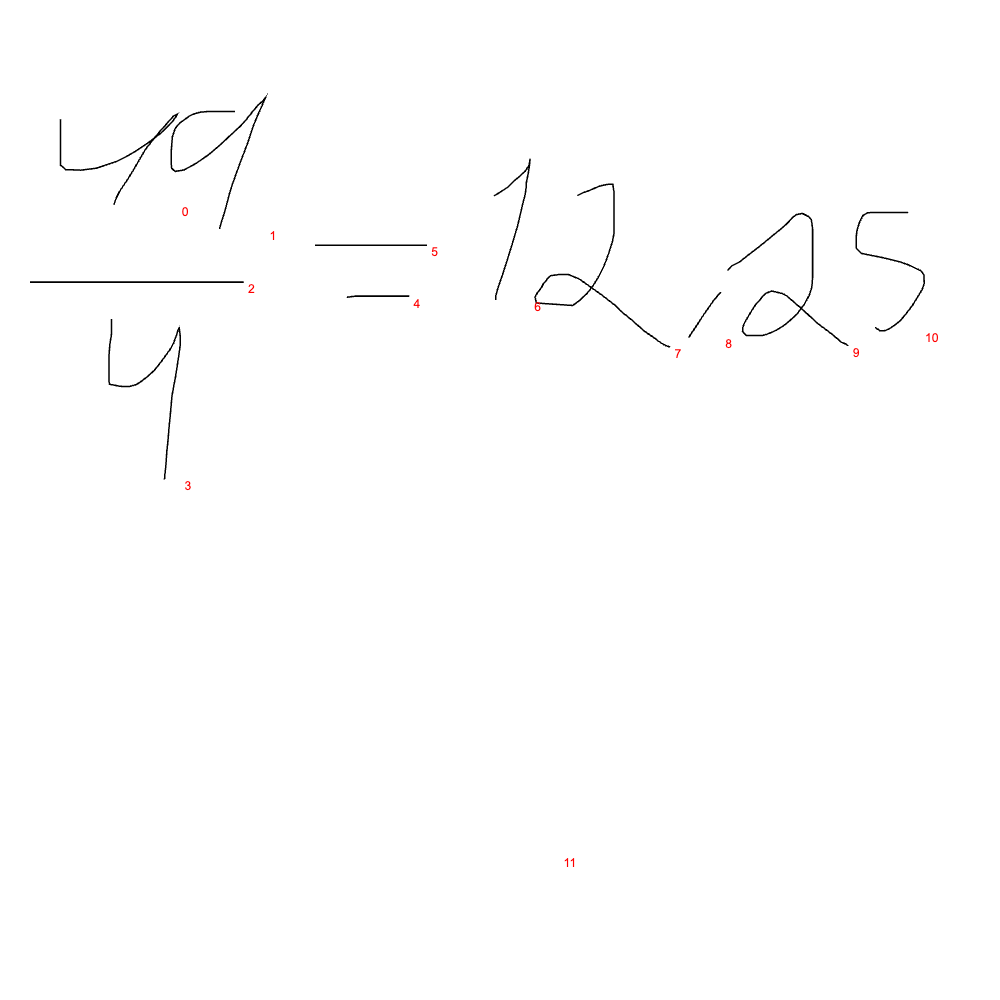 49/4 = 12,25
0 1 2 3 4 5 6 7 8 9 10 11